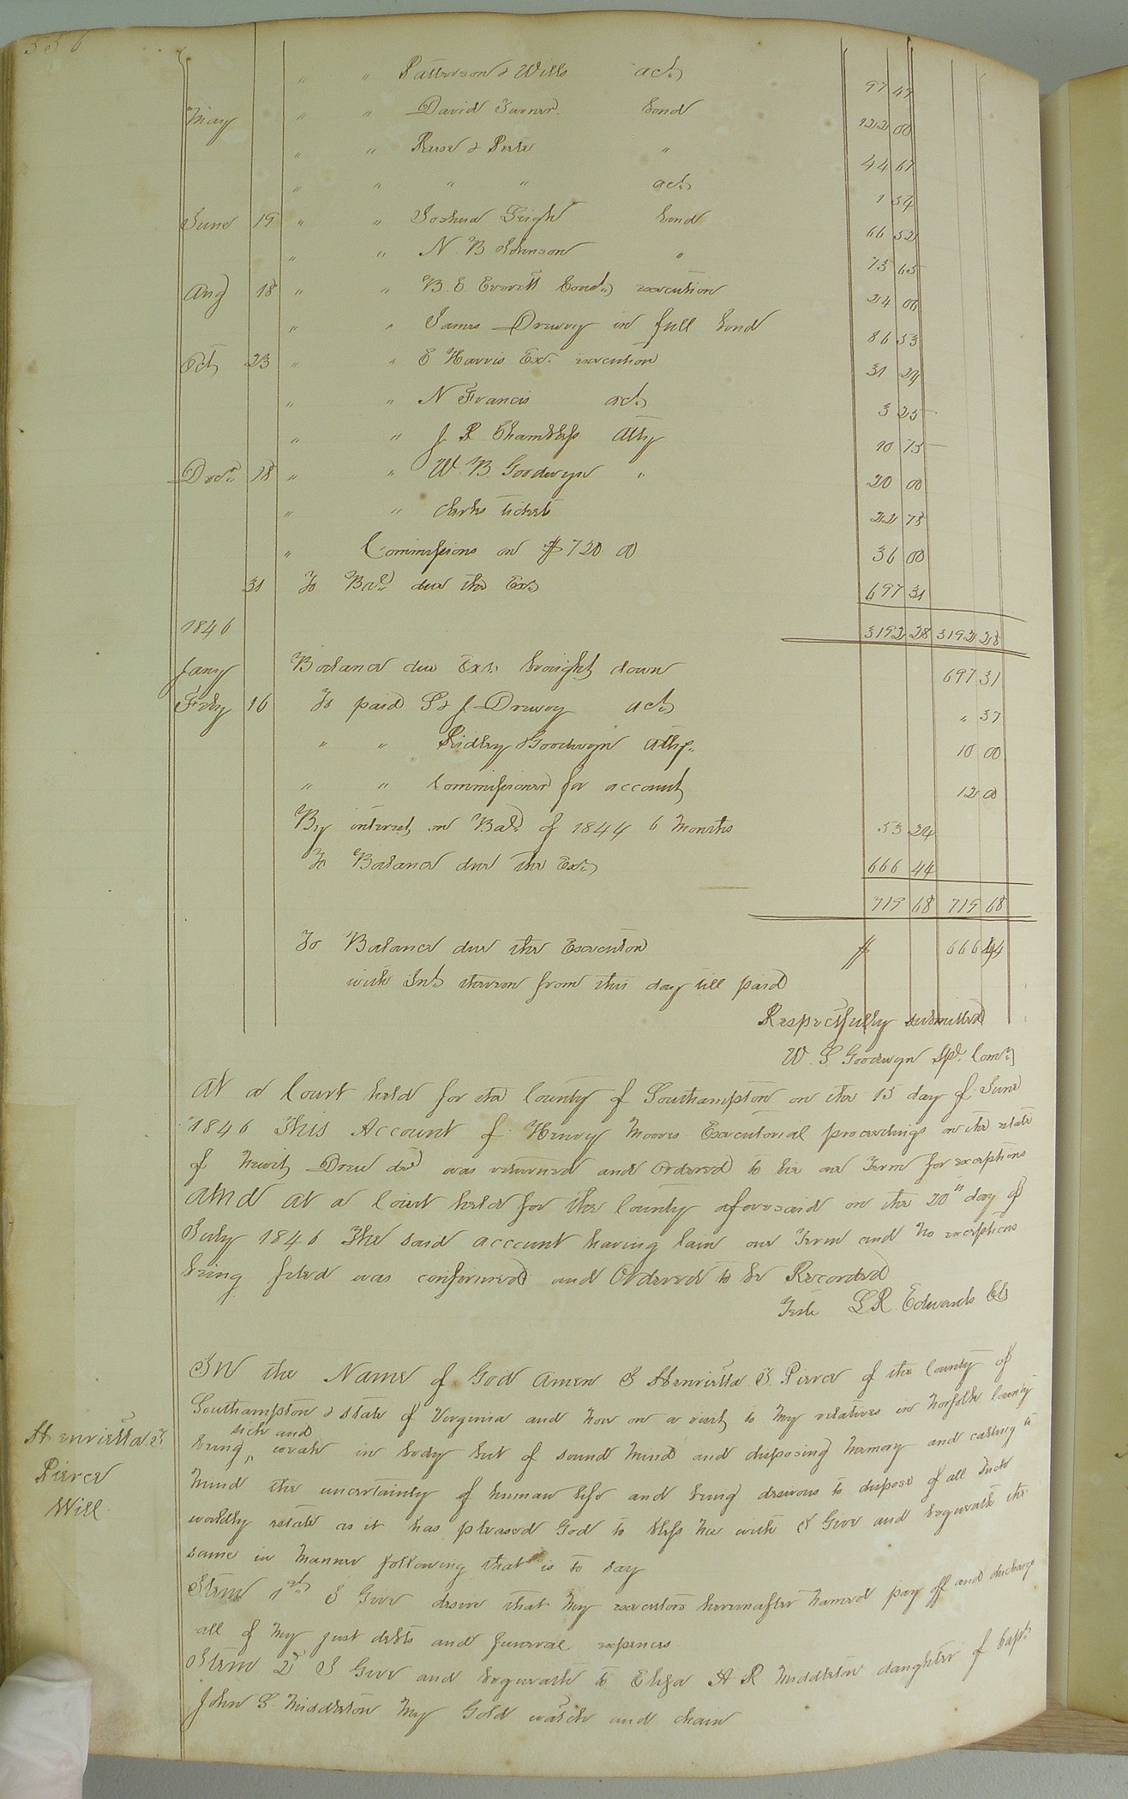 336
" " Patterson & Wills act 97 47
May " " David Turner bond 122 00
" " Reese & Peete " 44 67
" " " " act 1 54
June 19 " " Joshua Leigh bond 66 52
" " N B Johnson " 73 65
Aug 18 " " B. E Everett Cond. execution 24 00
" " James Drewry in full bond 86 53
Oct 23 " " E Harris Exr. execution 31 24
" " N Francis act 3 25
" " J R Chambliss Atty 10 75
Decr 18 " " W. B. Goodwyn " 20 00
" " clerks tickets 22 73
" Commissions on $720 00 36 00
31 To Bal. due the Exr 697 31
1846 3192 28 3192 28
Jany Balance due Exr. brought down 697 31
Feby 16 To paid S & J Drewry act " 37
" " Ridley & Goodwyn Attys. 10 00
" " Commissioner for account 12 00
By interest on Bal of 1844 6 Months 53 24
To Balance due the Exr 666 44
719 68 719 68
To Balance due the Executor $ 666 44
with Int thereon from this day till paid
Respectfully submitted
W. S Goodwyn Spl. Comr
At a Court held for the County of Southampton on the 15 day of June
1846 This Account of Henry Moores Executorial proceedings on the estate
of Newit Drew decd was returned and Ordered to lie one Term for exceptions
And At a Court held for the County aforesaid on the 20th day of
July 1846 The said account having lain one Term and no exceptions
being filed was confirmed and Ordered to be Recorded
Teste L R Edwards Cl
In the Name of God Amen I Henrietta T Pierce of the County of
Southampton & state of Virginia and now on a visit to my relatives in Norfolk County
being sick and weak in body but of sound mind and disposing memory and calling to
mind the uncertainty of human life and being desirous to dispose of all such
worldly estate as it has pleased God to bless me with I Give and bequeath the
same in manner following that is to say
Item 1st I Give desire that my executors hereinafter named pay off and discharge
all of my just debts and funeral expenses
Item 2d I Give and bequeath to Eliza A R Middleton daughter of Capt
John S. Middleton my Gold watch and chain
Henrietta T.
Pierce
Will